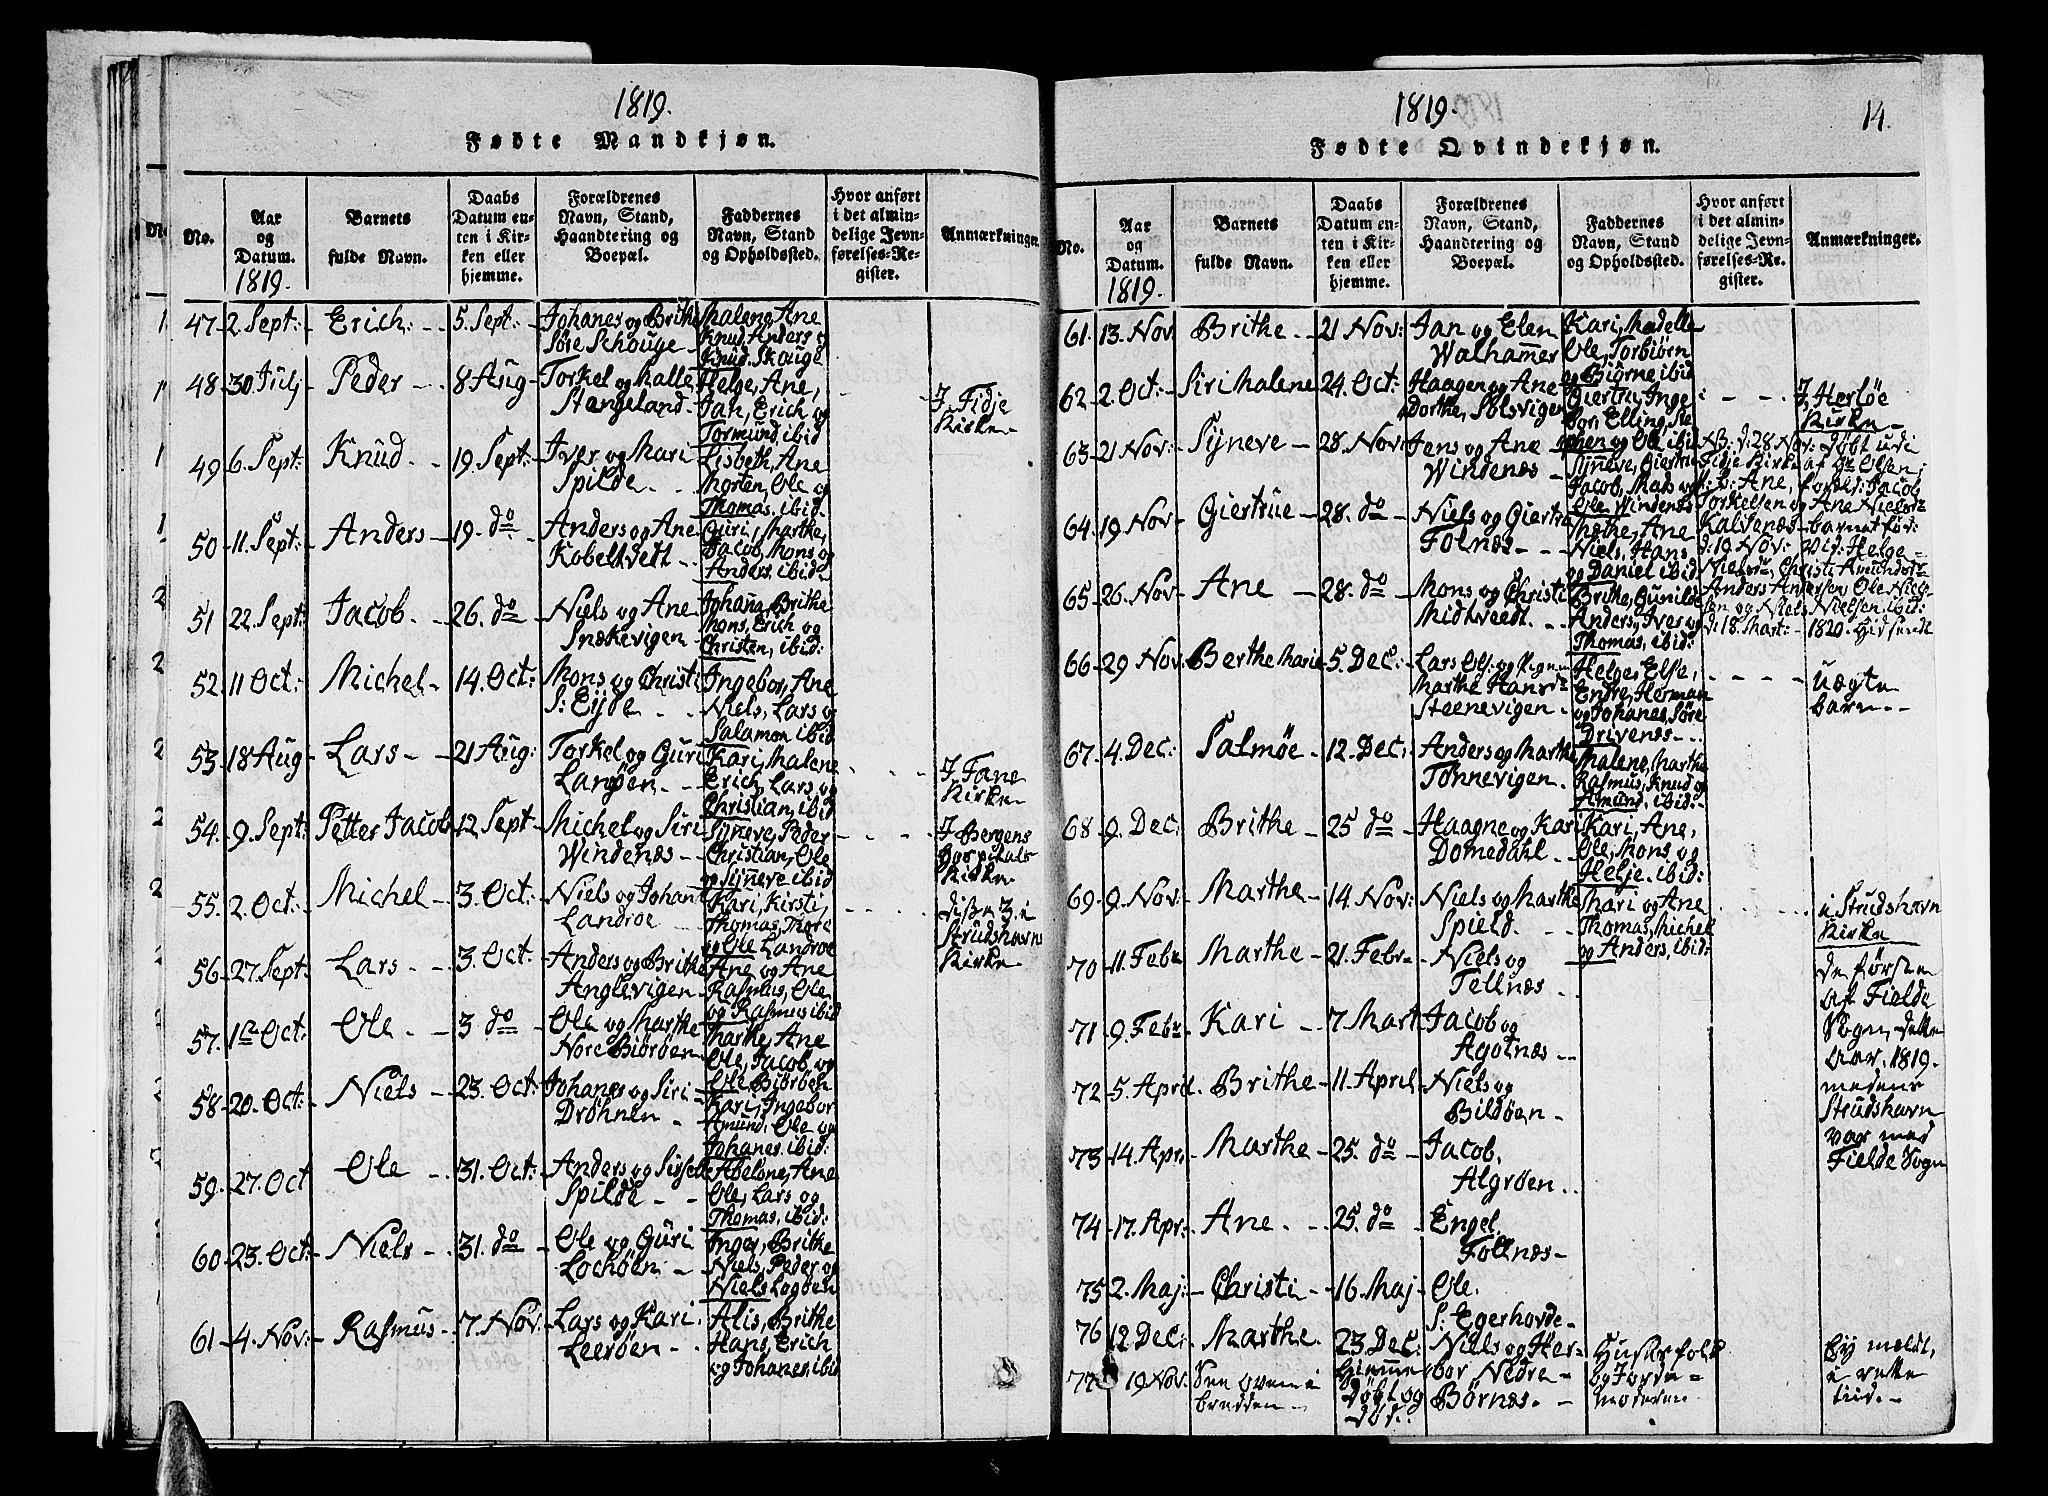 1819.
Fødte Mandkjøn.
No.
Aar og Datum. 1819.
Barnets fulde Navn.
Daabs Datum enten i Kirken eller hjemme.
Forældrenes Navn, Stand, Haandtering og Boepæl.
Faddernes Navn, Stand og Opholdssted.
Hvor anført i det almindelige Jevnførelses-Register.
Anmærkninger.
47 2. Sept: Erich. 5. Sept: Johanes og Brithe
Søre Schouge
Malene, Ane
Knud, Anders og
Knud. Skauge
48 30 Julj Peder 8 Aug Torkel og Malle
Stangeland.
Helge, Ane,
Jan, Erich og
Tormund, ibid
J, Fidje
Kirke
49 6. Sept: Knud. 19. Sept: Iver og Mari
Spilde.
Lisbeth, Ane
Morten, Ole og
Thomas. ibid.
50 11. Sept: Anders 19. do Anders og Ane
Kobeltvedt
Guri, Marthe,
Jacob, Mons og
Anders, ibid
51 22. Sept: Jacob. 26. do Niels og Ane
Snækevigen
Johana, Brithe
Mons, Erich og
Christen, ibid:
52 11 Oct: Michel 14. Oct: Mons og Christi
S: Eyde
Ingebor, Ane
Niels, Lars og
Salamon ibid
53 18 Aug Lars 21 Aug: Torkel og Guri
Langøen
Kari, Malene
Erich, Lars og
Christian, ibid
J, Fane
Kirke
54. 9. Sept: Petter Jacob 12 Sept Michel og Siri
Windenæs
Syneve, Peder
Christian, Ole
og Syneve ibid
J Bergens
Hospitals
Kirke
55. 2. Oct: Michel 3. Oct: Niels og Johana
Landroe
Kari, Kirsti,
Thomas, Thore
og Ole Landroe
disse 3. i
Strudshavns
Kirke
56 27. Sept: Lars 3. Oct: Anders og Brithe
Anglevigen
Ane og Ane
Rasmus, Ole
og Rasmus ibid
57. 1ste Oct: Ole. 3 do Ole og Marthe
Nore Biørøen
Marthe, Ane
Ole, Jacob og
Ole Biørøen
58 20. Oct: Niels 23. Oct: Johanes og Siri
Drøhnen
Kari, Ingebor
Amund, Ole og
Johanes. ibid:
59. 27. Oct Ole 31. Oct: Anders og Sissele
Spilde
Abelone, Ane
Ole, Lars og
Thomas, ibid:
60 23. Oct: Niels 31. do Ole og Guri
Lochøen
Inger, Brithe
Niels, Peder og
Niels Logøen
61 4. Nov: Rasmus 7. Nov: Lars og Kari
Leerøen
Alis, Brithe
Hans, Erich
og Johanes, ibid
1819.
14.
Fødte Qvindekjøn.
No.
Aar og Datum. 1819.
Barnets fulde Navn.
Daabs Datum enten i Kirken eller hjemme.
Forældrenes Navn, Stand, Haandtering og Boepæl.
Faddernes Navn, Stand og Opholdssted.
Hvor anført i det almindelige Jevnførelses-Register.
Anmærkninger.
61. 13. Nov Brithe 21 Nov: Jan og Elen
Walhammer
Kari, Madelle
Ole, Torbiørn
og Biørne ibid
62 2. Oct: Siri Malene 24. Oct: Haagen og Ane
Dorthe, Solsvigen
Giertru, Inge
bor, Elling, Ste
phen og Ole ibid
J, Herløe
Kirke
63 21 Nov: Syneve 28. Nov Jens og Ane
Windenæs
Syneve, Giertru
Jacob, Mads og
Ole Windenæs
NB: d: 28 Nov: døbt udi
Fidje Kirke af Hr Olsen;
Ane, Foreld: Jacob
Torkelsen og Ane Nielsdr
Kalvenæs barnet fød:
d: 19 Nov: Vid: Helge
Nielsdr, Christi Amundsdr
Anders Andersen Ole Niel-
sen og Niels Nielsen. ibid:
d: 18. Mart: 1820. hid sendt
64 19 Nov Giertrue 28. do Niels og Giertru
Folnæs
Marthe, Ane
Niels, Hans
og Daniel ibid
65 26. Nov Ane 28. do Mons og Christi
Midtveedt
Brithe, Gunilde
Anders, Iver og
Thomas, ibid:
66 29 Nov: Berthe Marie 5. Dec: Lars Ols: og Pigen
Marthe Hansdr
Steenevigen
Helge, Else,
Endre, Herman
og Johanes, Søre
Drivenæs
Uægte
barn
67. 4. Dec: Salmøe 12. Dec: Anders og Marthe
Tønnevigen
Malene, Marthe
Rasmus, Knud og
Amund, ibid:
68 9. Dec: Brithe 25 do Haagne og Kari
Domedahl
Kari, Ane,
Ole, Mons og
Helje. ibid:
69. 9. Nov: Marthe 14. Nov: Niels og Marthe
Spield.
Mari og Ane
Thomas, Michel
og Anders, ibid:
i Strudshavn
Kirke
70 11. Febr Marthe 21. Febr Niels og
Tellnæs
de første
af Fielde
Sogn, dette
Aar. 1819.
medens
Strudshavn
var med
Fielde Sogn
71 9. Febr Kari 7 Mart Jacob og
Agotnæs
72 5. April Brithe 11 April Niels og
Bildøen
73 14. Apr: Marthe 25. do Jacob,
Algrøen
74 17. Apr: Ane. 25. do Engel
Follnæs
75 2. Maj: Christi 16. Maj Ole.
S: Egerhovde
76 12 Dec: Marthe. 23. Dec: Niels og Her-
Hiemme
døbt og
død.
bor Nedre
Børnæs.
Husefolk
og Jorde=
moderen
Ey meldt,
i rette
tiid.
77 19 Nov: